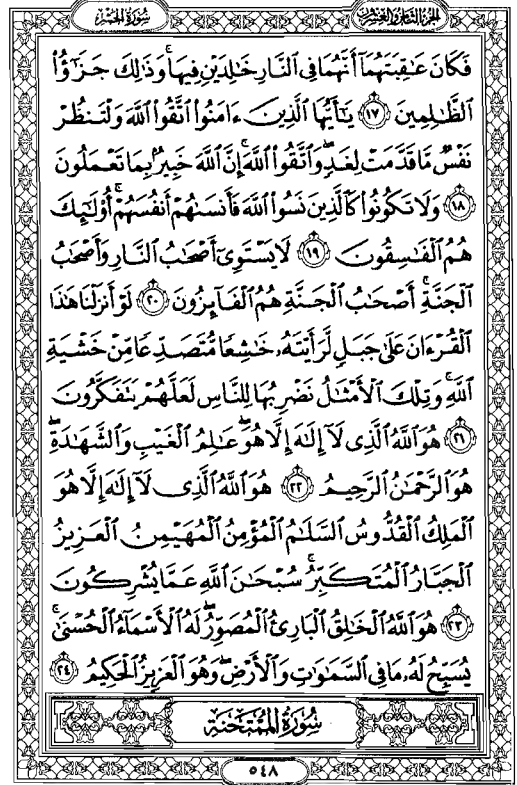 سُورَةُ الحَشْر
الجُزءُ الثَّامِنُ وَالعِشْرُونَ
فَكَانَ عَٰقِبَتَهُمَآ أَنَّهُمَا فِى ٱلنَّارِ خَٰلِدَيْنِ فِيهَا ۚ وَذَٰلِكَ جَزَٰٓؤُا۟
ٱلظَّٰلِمِينَ ﴿١٧﴾ يَٰٓأَيُّهَا ٱلَّذِينَ ءَامَنُوا۟ ٱتَّقُوا۟ ٱللَّهَ وَلْتَنظُرْ
نَفْسٌ مَّا قَدَّمَتْ لِغَدٍ ۖ وَٱتَّقُوا۟ ٱللَّهَ ۚ إِنَّ ٱللَّهَ خَبِيرٌۢ بِمَا تَعْمَلُونَ
﴿١٨﴾ وَلَا تَكُونُوا۟ كَٱلَّذِينَ نَسُوا۟ ٱللَّهَ فَأَنسَىٰهُمْ أَنفُسَهُمْ ۚ أُو۟لَٰٓئِكَ
هُمُ ٱلْفَٰسِقُونَ ﴿١٩﴾ لَا يَسْتَوِىٓ أَصْحَٰبُ ٱلنَّارِ وَأَصْحَٰبُ
ٱلْجَنَّةِ ۚ أَصْحَٰبُ ٱلْجَنَّةِ هُمُ ٱلْفَآئِزُونَ ﴿٢٠﴾ لَوْ أَنزَلْنَا هَٰذَا
ٱلْقُرْءَانَ عَلَىٰ جَبَلٍ لَّرَأَيْتَهُۥ خَٰشِعًا مُّتَصَدِّعًا مِّنْ خَشْيَةِ
ٱللَّهِ ۚ وَتِلْكَ ٱلْأَمْثَٰلُ نَضْرِبُهَا لِلنَّاسِ لَعَلَّهُمْ يَتَفَكَّرُونَ
﴿٢١﴾ هُوَ ٱللَّهُ ٱلَّذِى لَآ إِلَٰهَ إِلَّا هُوَ ۖ عَٰلِمُ ٱلْغَيْبِ وَٱلشَّهَٰدَةِ ۖ
هُوَ ٱلرَّحْمَٰنُ ٱلرَّحِيمُ ﴿٢٢﴾ هُوَ ٱللَّهُ ٱلَّذِى لَآ إِلَٰهَ إِلَّا هُوَ
ٱلْمَلِكُ ٱلْقُدُّوسُ ٱلسَّلَٰمُ ٱلْمُؤْمِنُ ٱلْمُهَيْمِنُ ٱلْعَزِيزُ
ٱلْجَبَّارُ ٱلْمُتَكَبِّرُ ۚ سُبْحَٰنَ ٱللَّهِ عَمَّا يُشْرِكُونَ
﴿٢٣﴾ هُوَ ٱللَّهُ ٱلْخَٰلِقُ ٱلْبَارِئُ ٱلْمُصَوِّرُ ۖ لَهُ ٱلْأَسْمَآءُ ٱلْحُسْنَىٰ ۚ
يُسَبِّحُ لَهُۥ مَا فِى ٱلسَّمَٰوَٰتِ وَٱلْأَرْضِ ۖ وَهُوَ ٱلْعَزِيزُ ٱلْحَكِيمُ ﴿٢٤﴾
سُورَةُ المُمْتَحنَة
٥٤٨